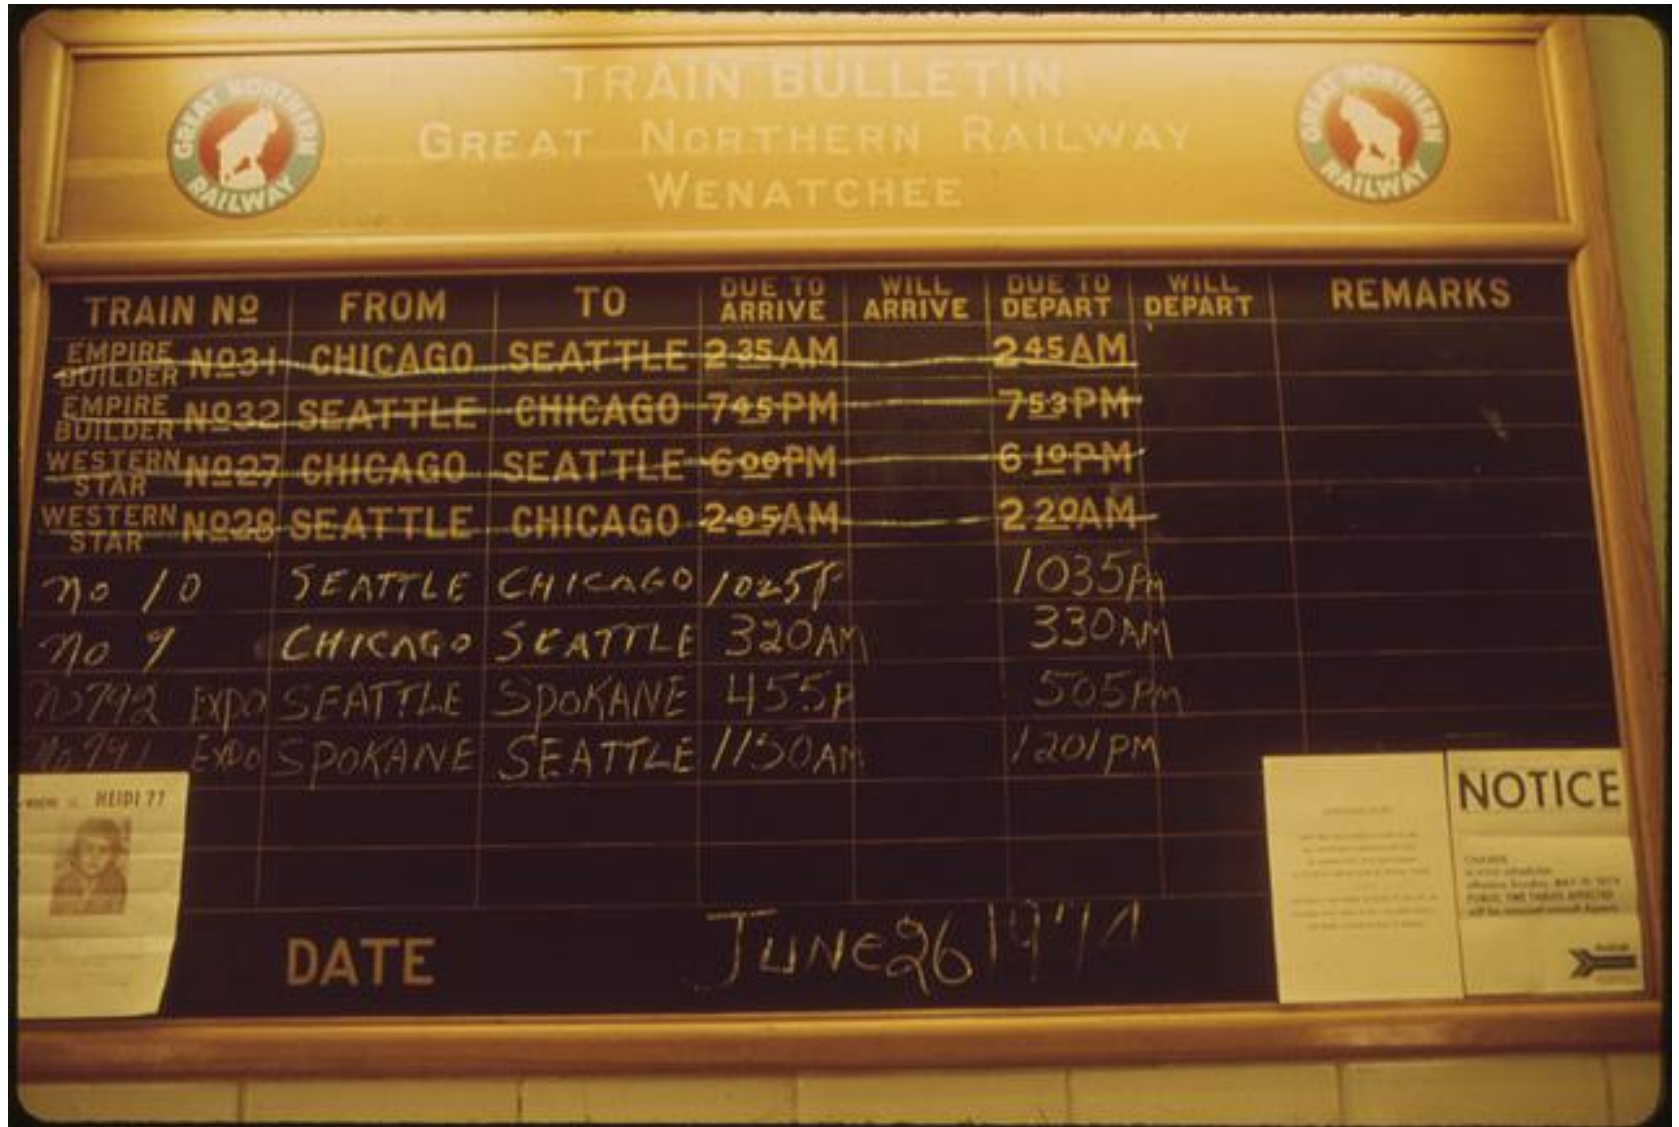 TRAIN BULLETIN
GREAT NORTHERN RAILWAY
WENATCHEE
GREAT NORTHERN RAILWAY
GREAT NORTHERN RAILWAY
TRAIN No FROM TO DUE TO ARRIVE WILL ARRIVE DUE TO DEPART WILL DEPART REMARKS
EMPIRE BUILDER No31 CHICAGO SEATTLE 2 35 AM 2 45 AM
EMPIRE BUILDER No32 SEATTLE CHICAGO 7 45 PM 7 53 PM
WESTERN STAR No27 CHICAGO SEATTLE 6 00 PM 6 10 PM
WESTERN STAR No28 SEATTLE CHICAGO 2 05 AM 2 20 AM
no 10 SEATTLE CHICAGO 1025P 1035PM
no 9 CHICAGO SEATTLE 320AM 330AM
No792 EXPO SEATTLE SPOKANE 455P 505PM
No791 EXPO SPOKANE SEATTLE 1150AM 1201PM
HEIDI 77
NOTICE
DATE JUNE 26 1974